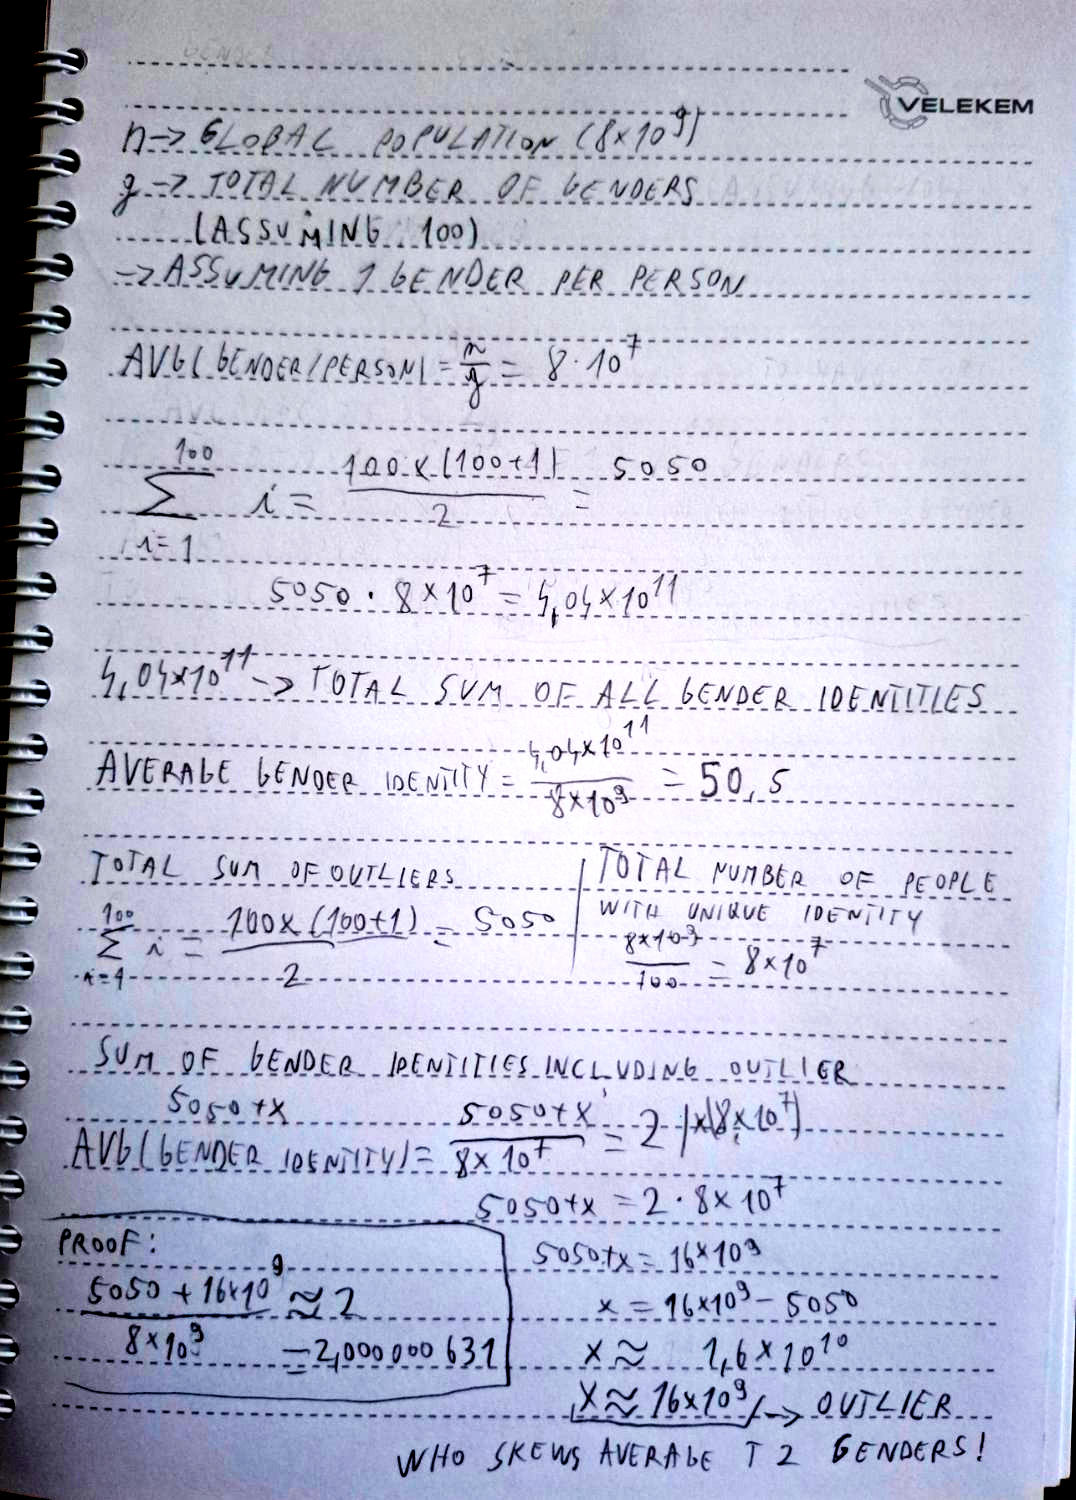 VELEKEM
n -> GLOBAL POPULATION (8×10^9)
g -> TOTAL NUMBER OF GENDERS
(ASSUMING 100)
-> ASSUMING 1 GENDER PER PERSON
AVG(GENDER/PERSON) = n/g = 8·10^7
∑_{i=1}^{100} i = 100×(100+1)/2 = 5050
5050 · 8×10^7 = 4,04×10^11
4,04×10^11 -> TOTAL SUM OF ALL GENDER IDENTITIES
AVERAGE GENDER IDENTITY = 4,04×10^11/8×10^9 = 50,5
TOTAL SUM OF OUTLIERS
∑_{i=1}^{100} i = 100×(100+1)/2 = 5050
TOTAL NUMBER OF PEOPLE
WITH UNIQUE IDENTITY
8×10^9/100 = 8×10^7
SUM OF GENDER IDENTITIES INCLUDING OUTLIER
5050+x
AVG(GENDER IDENTITY) = 5050+x/8×10^7 = 2 |×(8×10^7)
5050+x = 2·8×10^7
5050+x = 16×10^9
x = 16×10^9 - 5050
x ≈ 1,6×10^10
x ≈ 16×10^9 -> OUTLIER
WHO SKEWS AVERAGE T 2 GENDERS!
PROOF:
5050 + 16×10^9/8×10^9 ≈ 2
= 2,000000631